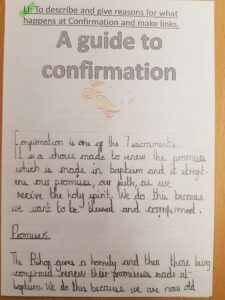 LI: To describe and give reasons for what
happens at Confirmation and make links.
A guide to
confirmation
Confirmation is one of the 7 sacraments.
It is a choice made to renew the promises
which is made in baptism and it
our promises, our faith, as we
receive the holy spirit. We do this because
we want to be blessed and comfirmed.
Promises
The Bishop gives a homily and then those being
confirmed renew their promises made at
baptism. We do this because we are now old